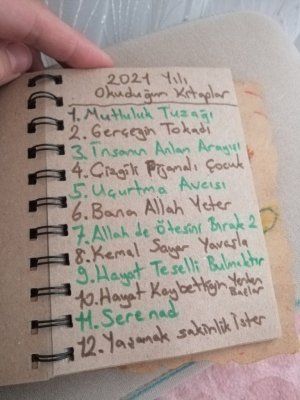 2021 Yılı
Okuduğum Kitaplar
1. Mutluluk Tuzağı
2. Gerçeğin Tokadı
3. İnsanın Anlam Arayışı
4. Çizgili Pijamalı Çocuk
5. Uçurtma Avcısı
6. Bana Allah Yeter
7. Allah de Ötesini Bırak 2
8. Kemal Sayar Yavaşla
9. Hayat Teselli Bulmaktır
10. Hayat Kaybettiğin Yerden
Başlar
11. Serenad
12. Yaşamak sakinlik ister